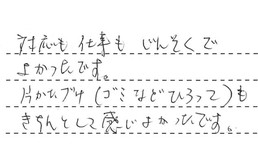 対応も仕事も じんそくで
よかったです。
片かたづけ(ゴミなどひろって)も
きちんとして感じよかったです。